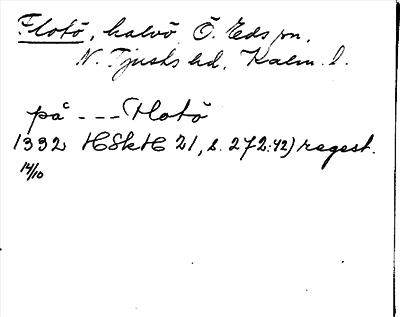 Flotö, halvö Ö. Eds sn,
N. Tjusts hd, Kalm. l.
på --- Flotö
1392 HSkH 21, s. 272:42) regest.
14/10